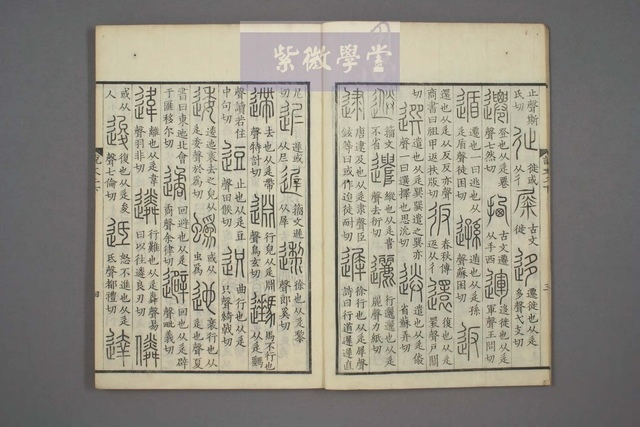 紫微學堂
止聲斯氏切 𨑭 徙或从彳 𡲴 古文徙 迻 遷徙也从辵多聲弋支切
遷 登也从辵䙴聲七然切 拪 古文遷从手西 運 迻徙也从辵軍聲王問切
遁 遷也一曰逃也从辵盾聲徒困切 遜 遁也从辵孫聲蘇困切 返
還也从辵从反反亦聲商書曰祖甲返扶版切 彶 春秋傳返从彳 還 復也从辵睘聲戶關
切 選 遣也从辵巽巽遣之巽亦聲一曰選擇也思沇切 送 遣也从辵倴省蘇弄切
籒文不省 遣 縱也从辵𠳋聲去衍切 邐 行邐邐也从辵麗聲力紙切
逮 唐逮及也从辵隶聲臣鉉等曰或作迨徒耐切 遲 徐行也从辵犀聲詩曰行道遲遲直
三
尼切 迡 遲或从𡰥 遟 籒文遲从屖 邌 徐也从辵黎聲郎奚切
遰 去也从辵帶聲特計切 行皃从辵淵聲烏玄切 馬不行也从辵鷙省
聲讀若住中句切 逗 止也从辵豆聲田候切 迟 曲行也从辵只聲綺戟切
逶 逶迆衺去之皃从辵委聲於為切 蟡 或从虫為 迆 衺行也从辵也聲夏
書曰東迆北會于匯移尔切 遹 回避也从辵矞聲余律切 避 回也从辵辟聲毗義切
違 離也从辵韋聲羽非切 遴 行難也从辵粦聲易曰以往遴良刃切 僯
或从人 逡 復也从辵夋聲七倫切 怒不進也从辵氐聲都禮切 達
說文二下
四